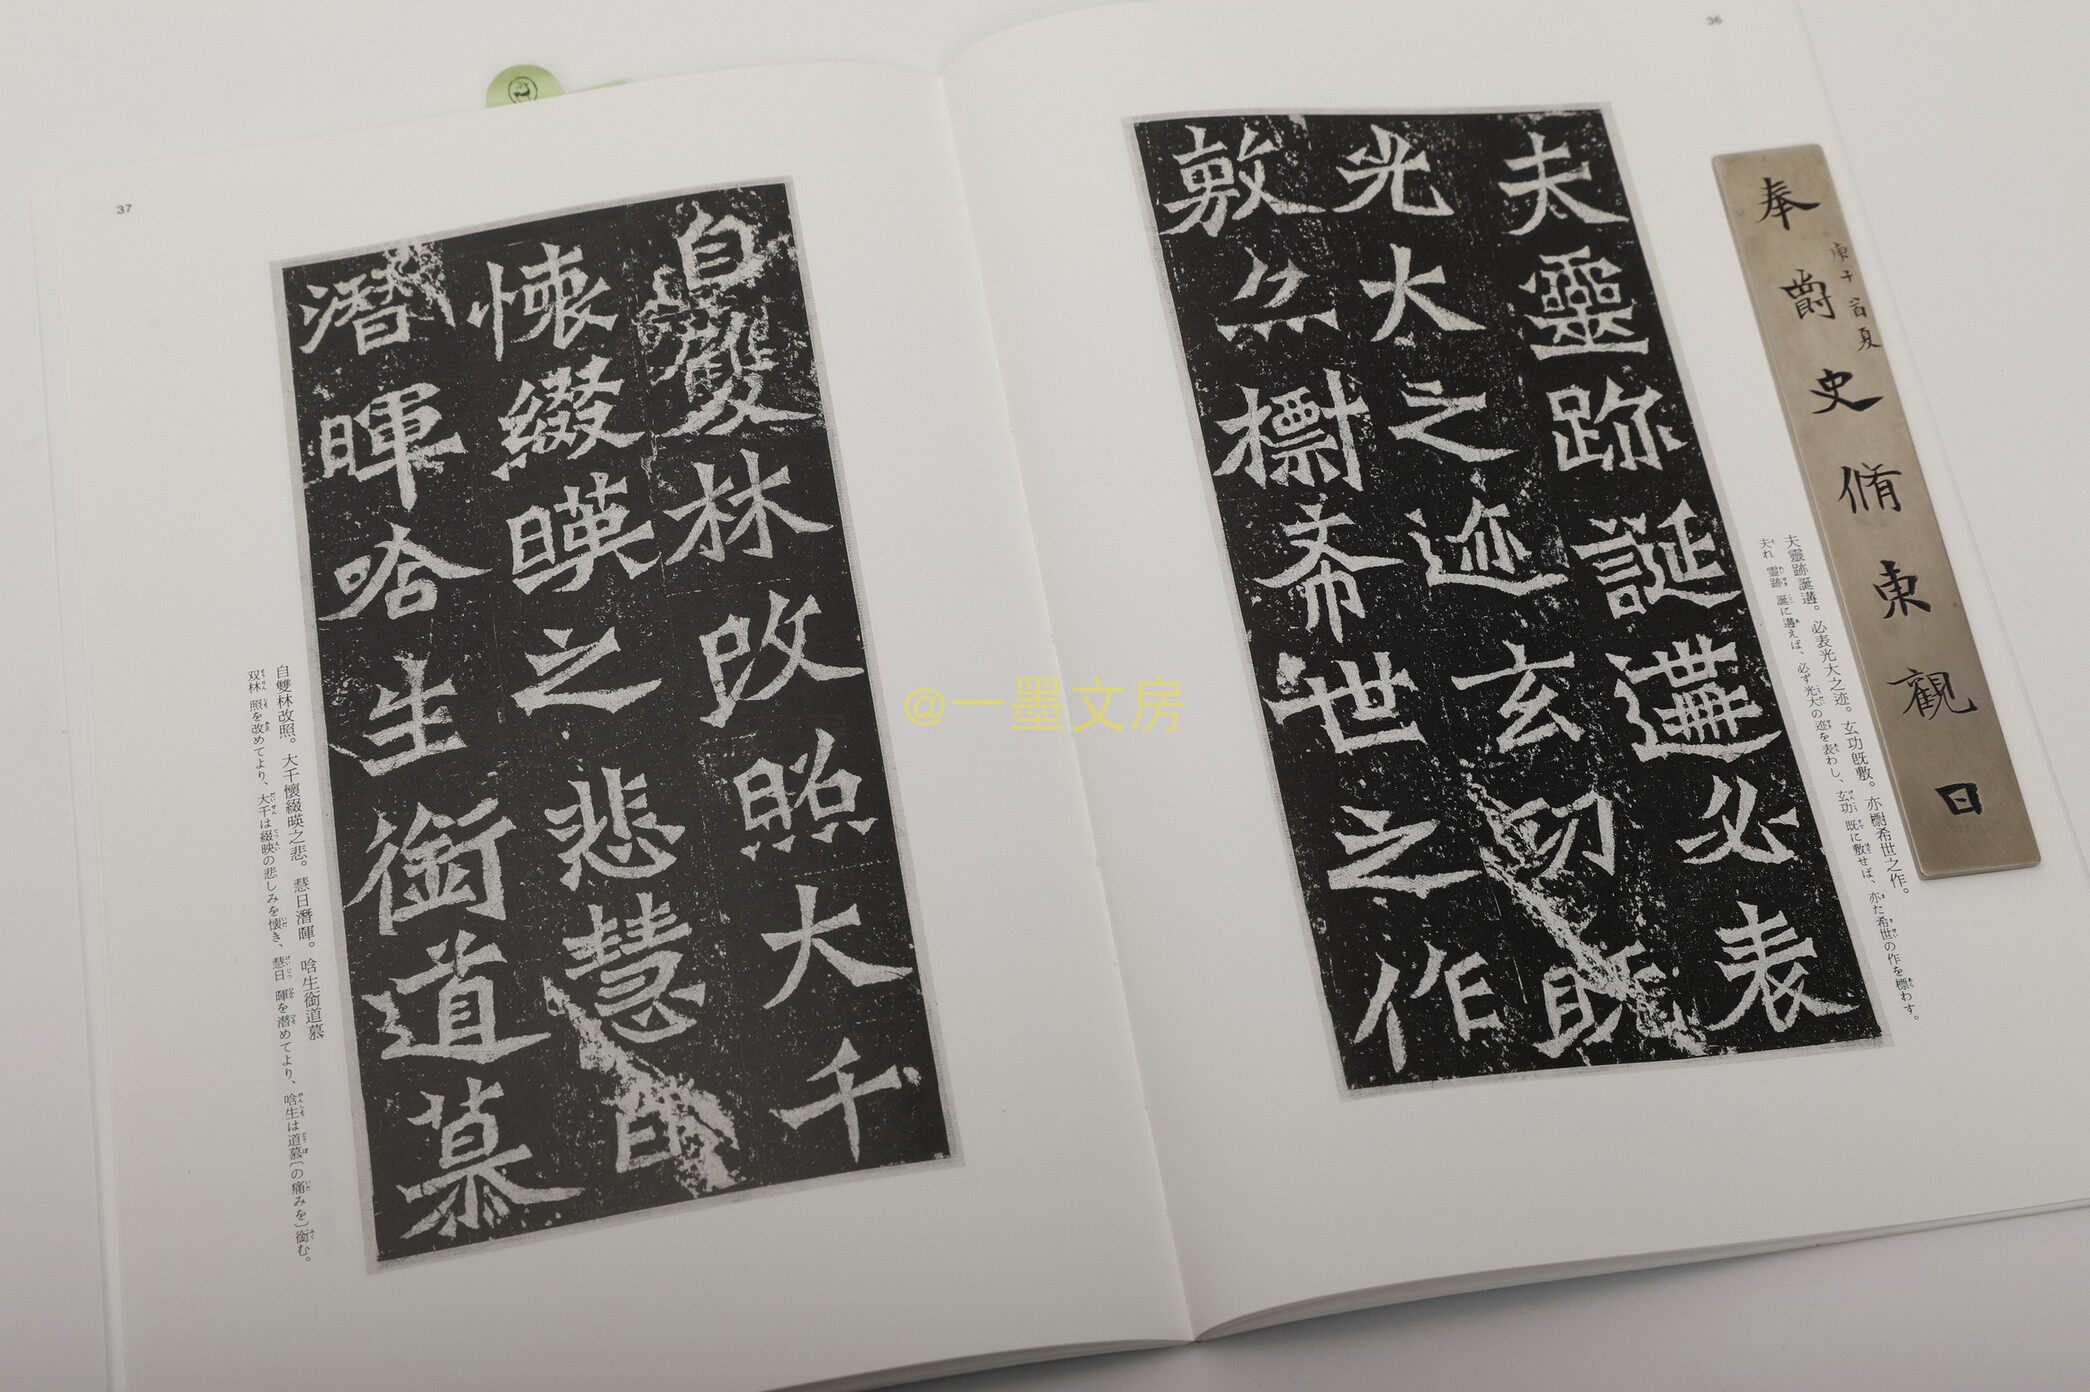 36
夫靈跡誕遘必表
光大之迹玄功既
敷亦檦希世之作
夫靈跡誕遘。必表光大之迹。玄功既敷。亦檦希世之作。
夫れ 霊跡 誕に遘えば、必ず光大の迹を表わし、玄功 既に敷せば、亦た希世の作を標わす。
奉爵史脩東觀日
庚子首夏
37
自雙林改照大千
懐綴暎之悲慧日
潛暉唅生銜道慕
自雙林改照。大千懷綴暎之悲。慧日潛暉。唅生銜道慕
双林 照を改めてより、大千は綴映の悲しみを懐き、慧日 暉を潜めてより、唅生は道慕〔の痛みを〕銜む。
@一墨文房